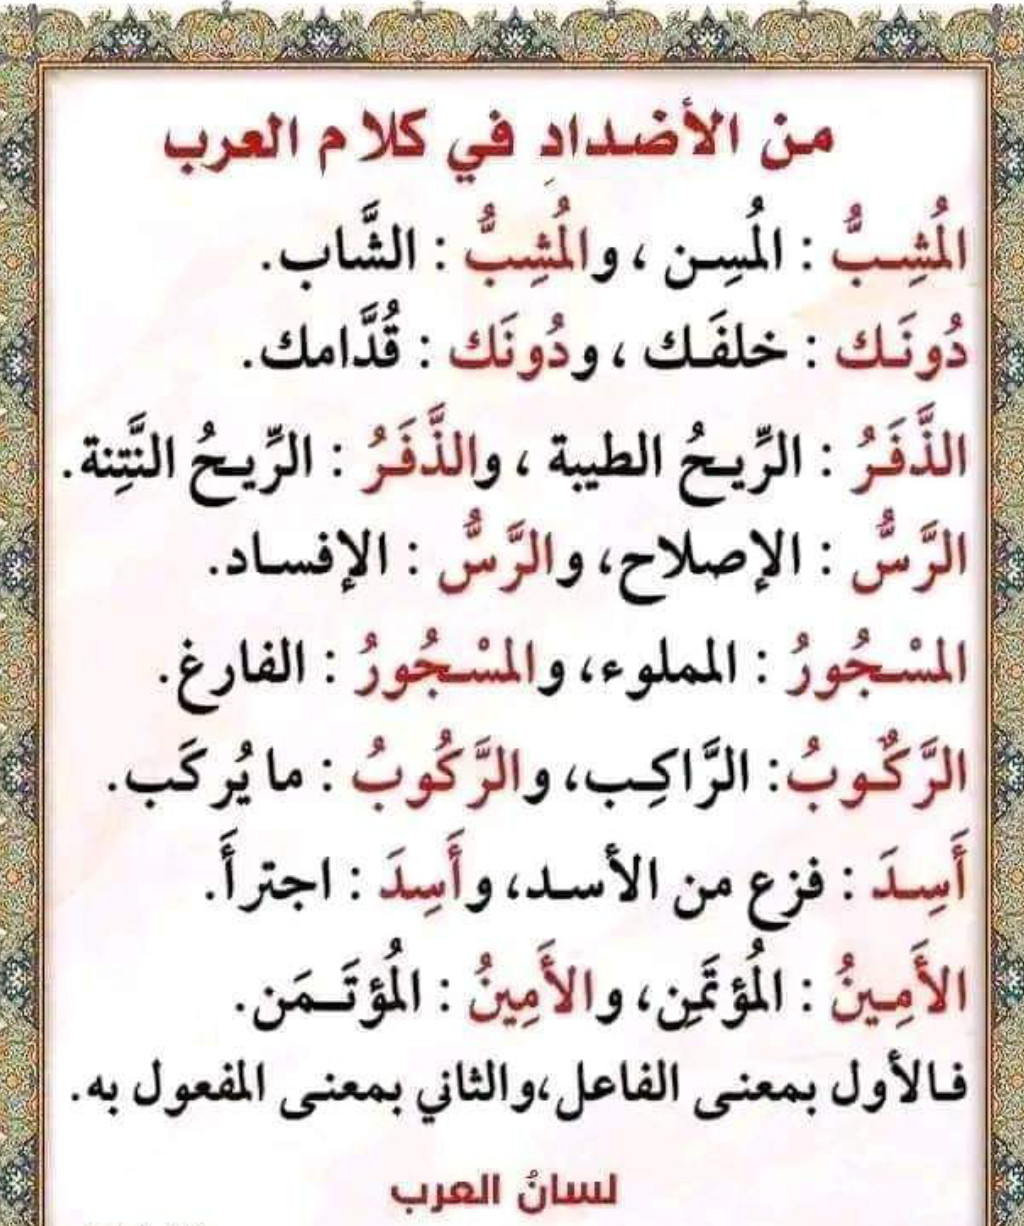 من الأضدادِ في كلام العرب
المُشِبُّ : المُسِن ، والمُشِبُّ : الشَّاب.
دُونَك : خلفَك ، ودُونَك : قُدَّامك.
الذَّفَرُ : الرِّيحُ الطيبة ، والذَّفَرُ : الرِّيحُ النَّتِنة.
الرَّسُّ : الإصلاح، والرَّسُّ : الإفساد.
المسْجُورُ : المملوء، والمسْجُورُ : الفارغ.
الرَّكُوبُ: الرَّاكِب، والرَّكُوبُ : ما يُركَب.
أَسِدَ : فزع من الأسد، وأَسِدَ : اجترأَ.
الأَمِينُ : المُؤتَمِن، والأَمِينُ : المُؤتَمَن.
فالأول بمعنى الفاعل،والثاني بمعنى المفعول به.
لسانُ العرب